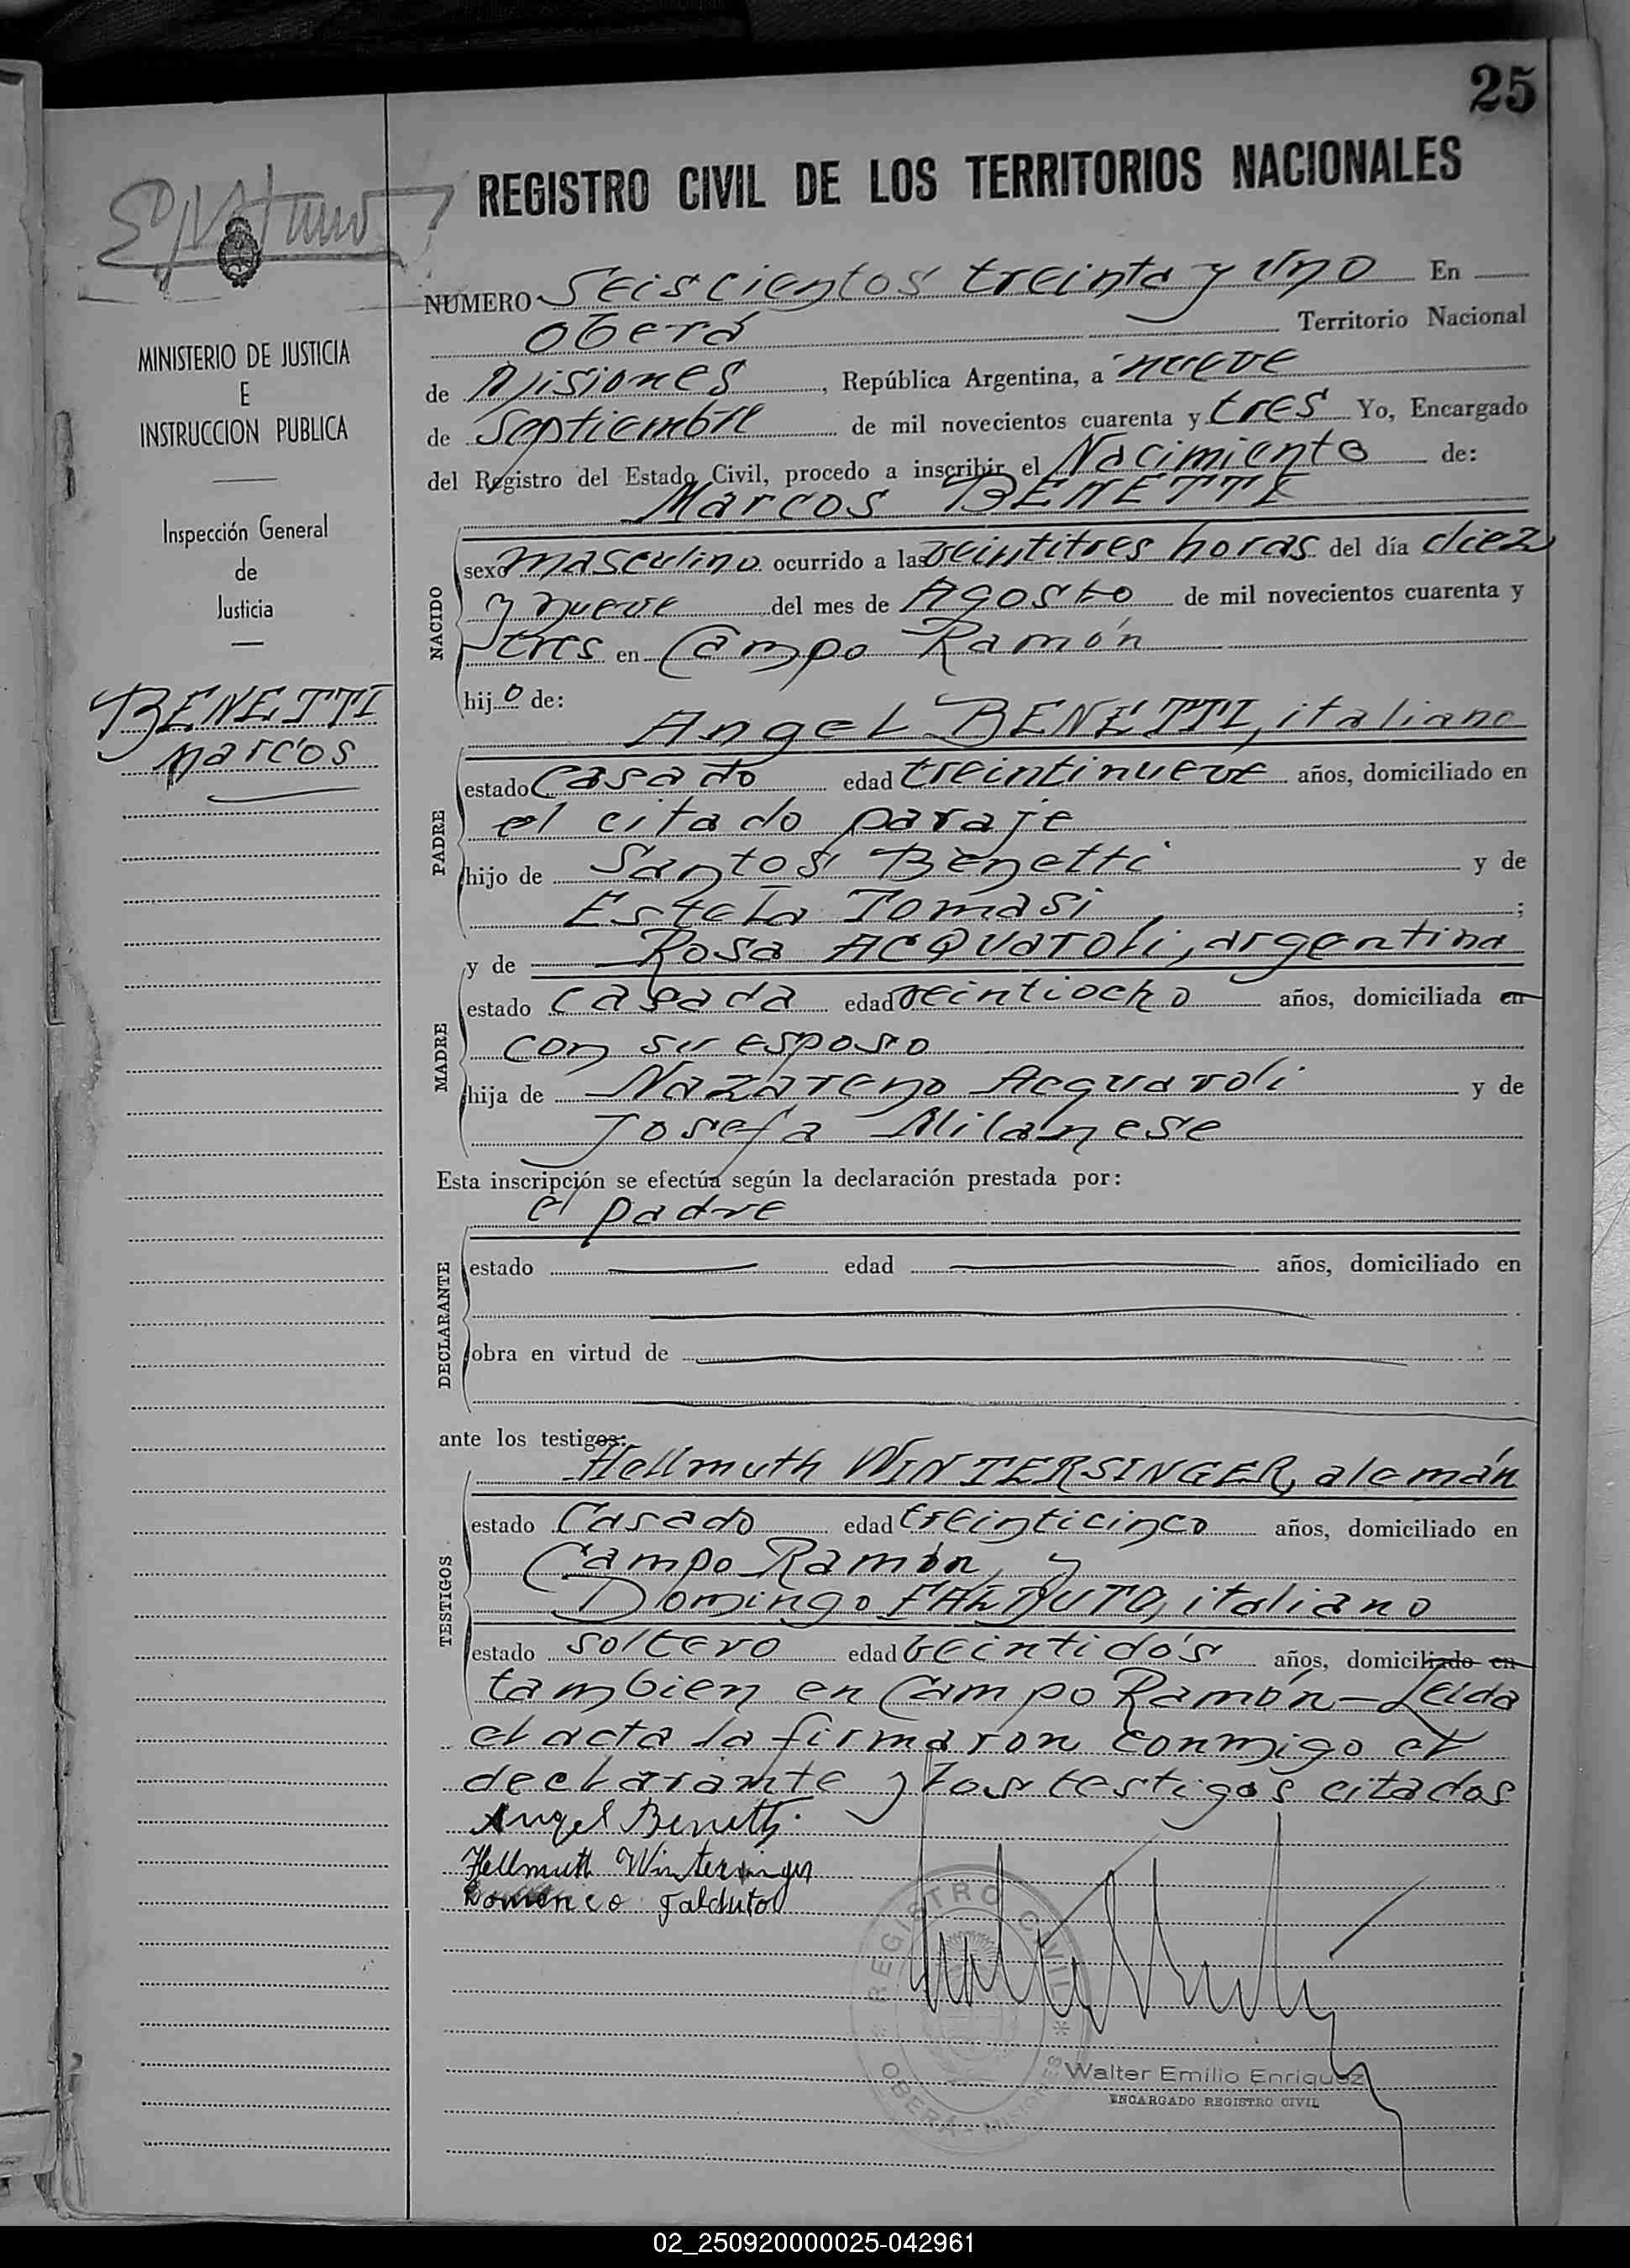 25
REGISTRO CIVIL DE LOS TERRITORIOS NACIONALES
NUMERO Seiscientos treinta y uno En
Oberá Territorio Nacional
de Misiones, República Argentina, a nueve
de Septiembre de mil novecientos cuarenta y tres Yo, Encargado
del Registro del Estado Civil, procedo a inscribir el Nacimiento de:
Marcos BENETTI
MINISTERIO DE JUSTICIA
E
INSTRUCCION PUBLICA
Inspección General
de
Justicia
BENETTI
Marcos
NACIDO
sexo masculino ocurrido a las veintitres horas del día diez
y nueve del mes de Agosto de mil novecientos cuarenta y
tres en Campo Ramón
hijo de:
Angel BENETTI, italiano
PADRE
estado Casado edad treintinueve años, domiciliado en
el citado paraje
hijo de Santos Benetti y de
Estela Tomasi;
y de Rosa ACQUAROLI, argentina
MADRE
estado casada edad veintiocho años, domiciliada en
con su esposo
hija de Nazareno Acquaroli y de
Josefa Milanese
Esta inscripción se efectúa según la declaración prestada por:
el padre
DECLARANTE
estado edad años, domiciliado en
obra en virtud de
ante los testigos:
Hellmuth WINTERSINGER, alemán
TESTIGOS
estado Casado edad treinticinco años, domiciliado en
Campo Ramón, y
Domingo FALDUTO, italiano
estado soltero edad veintidós años, domiciliado en
tambien en Campo Ramón - Leida
el acta la firmaron conmigo el
declarante y los testigos citados
Angel Benetti
Hellmuth Wintersinger
Domenico Falduto
REGISTRO CIVIL
OBERÁ - MISIONES
Walter Emilio Enriquez
ENCARGADO REGISTRO CIVIL
02_250920000025-042961